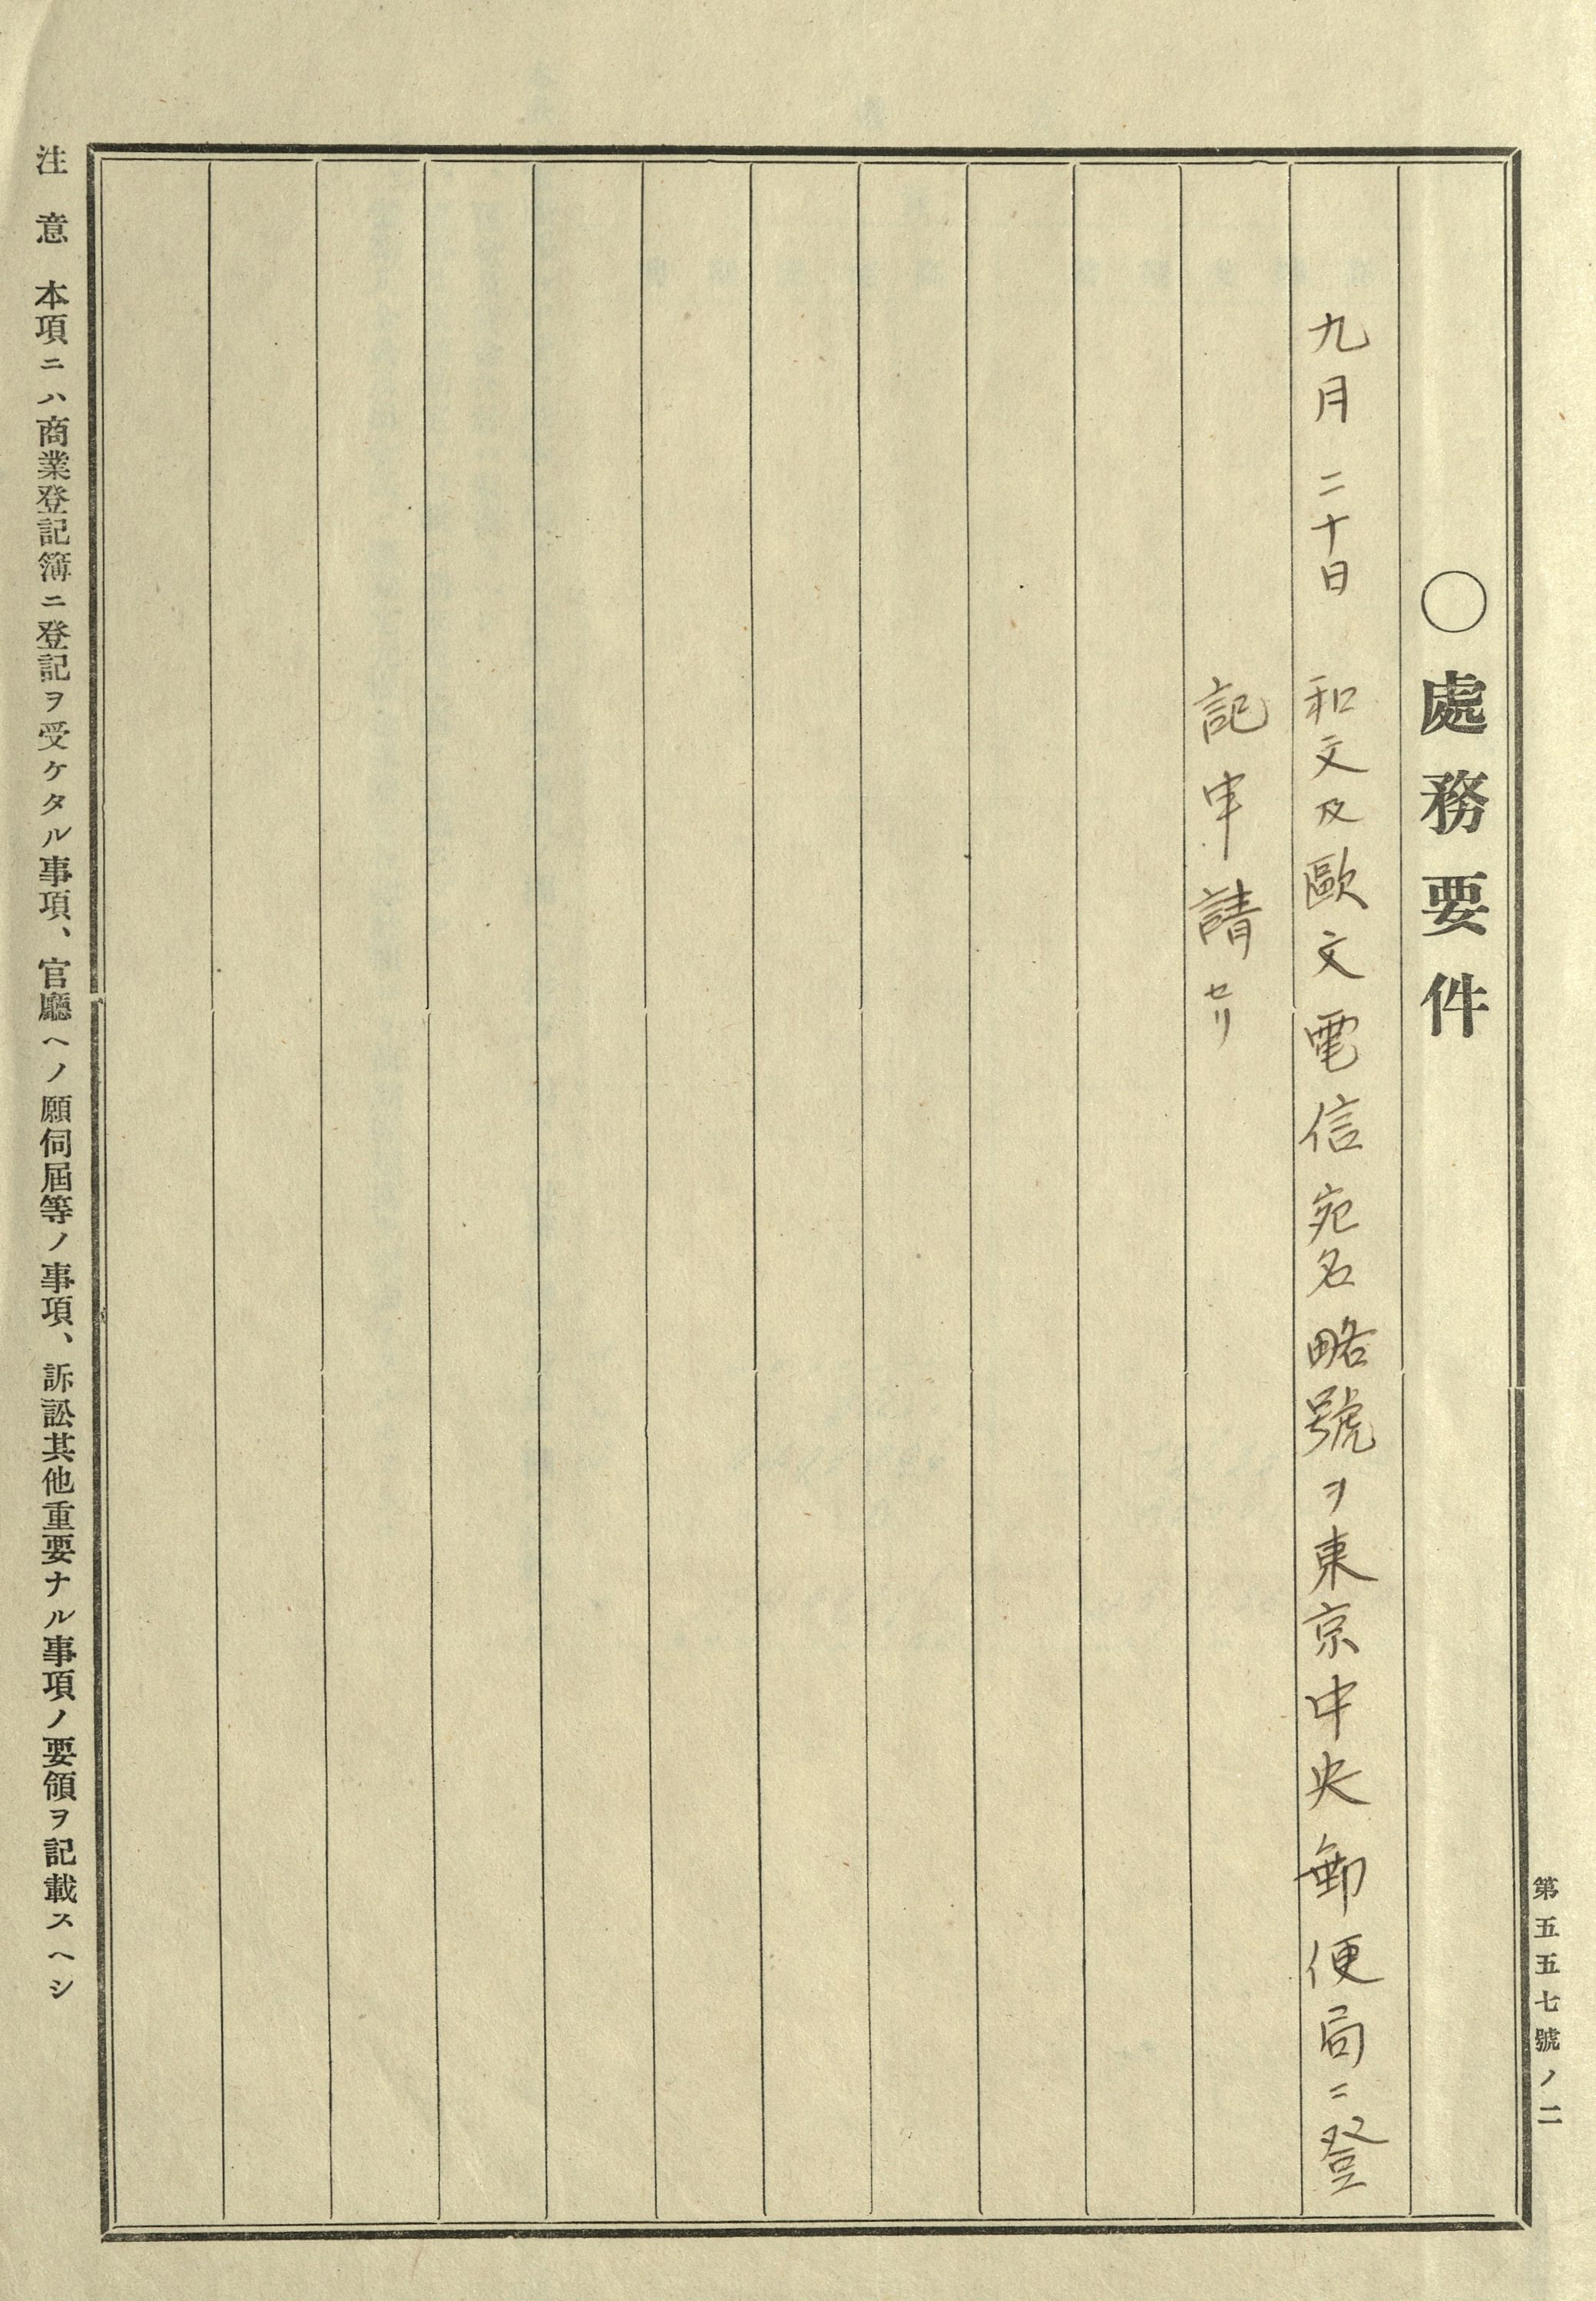 第五五七號ノ二
○處務要件
九月二十日 和文及歐文電信宛名略號ヲ東京中央郵便局ニ登
記申請セリ
注意 本項ニハ商業登記簿ニ登記ヲ受ケタル事項、官廳ヘノ願伺屆等ノ事項、訴訟其他重要ナル事項ノ要領ヲ記載スヘシ